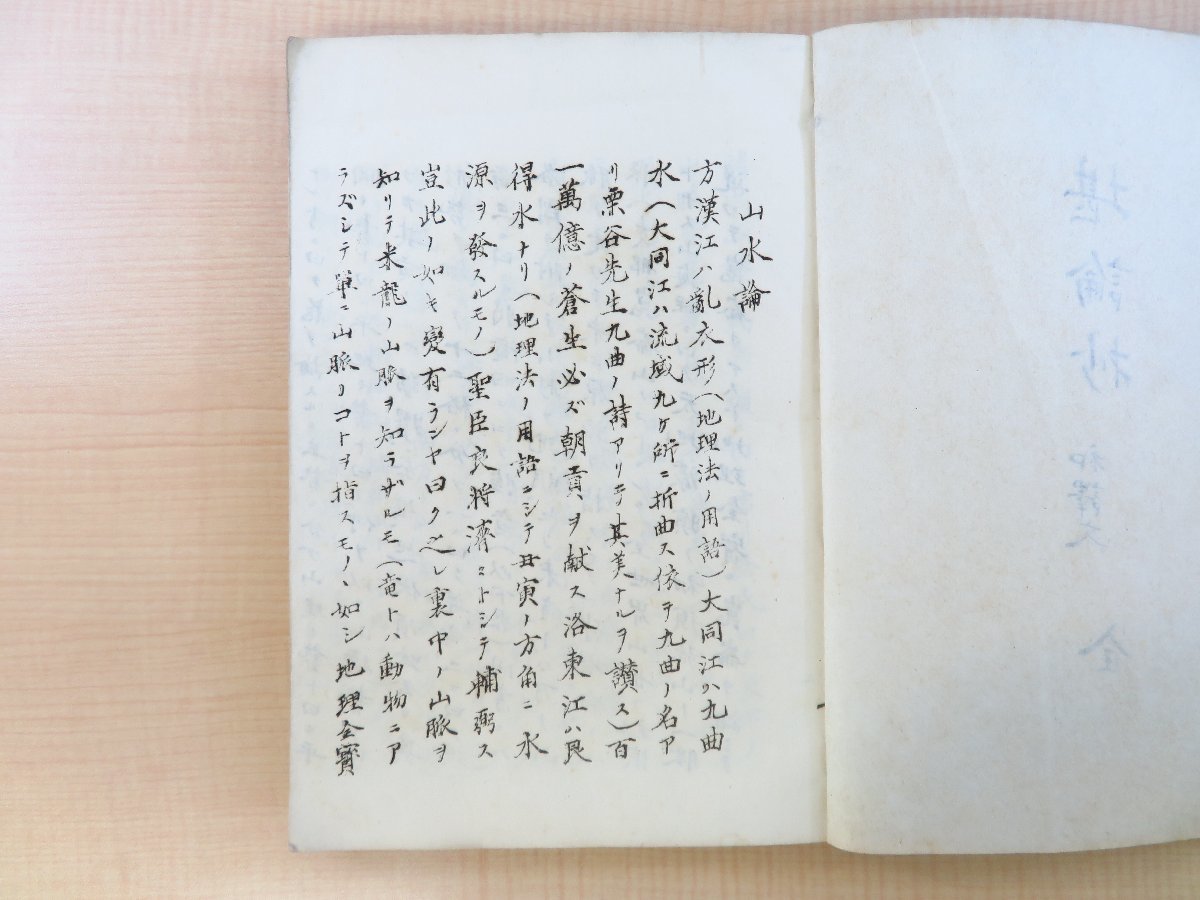 山水論
方漢江ハ亂衣形（地理法ノ用語）大同江ハ九曲
水（大同江ハ流域九ケ所ニ折曲ス依テ九曲ノ名ア
リ栗谷先生九曲ノ詩アリテ其美ナルヲ讃ス）百
一萬億ノ蒼生必ズ朝貢ヲ献ス洛東江ハ艮
得水ナリ（地理法ノ用語ニシテ丑寅ノ方角ニ水
源ヲ發スルモノ）聖臣良將濟ニトシテ輔弼ス
豈此ノ如キ變有ランヤ曰ク之レ裏中ノ山脈ヲ
知リテ米龍ノ山脈ヲ知ラザルモ（竜トハ動物ニア
ラズシテ單ニ山脈ノコトヲ指スモノヽ如シ地理全寳